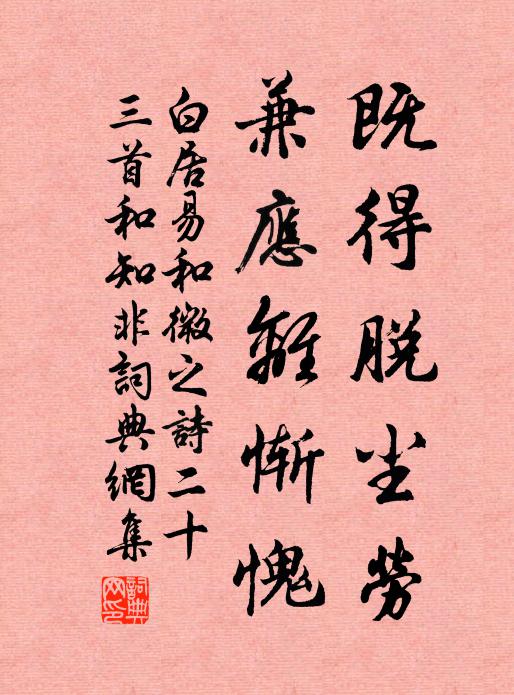 既得脫尘勞
兼應離慚愧
白居易和微之詩二十
三首和知非詞典網集
詞典
网印